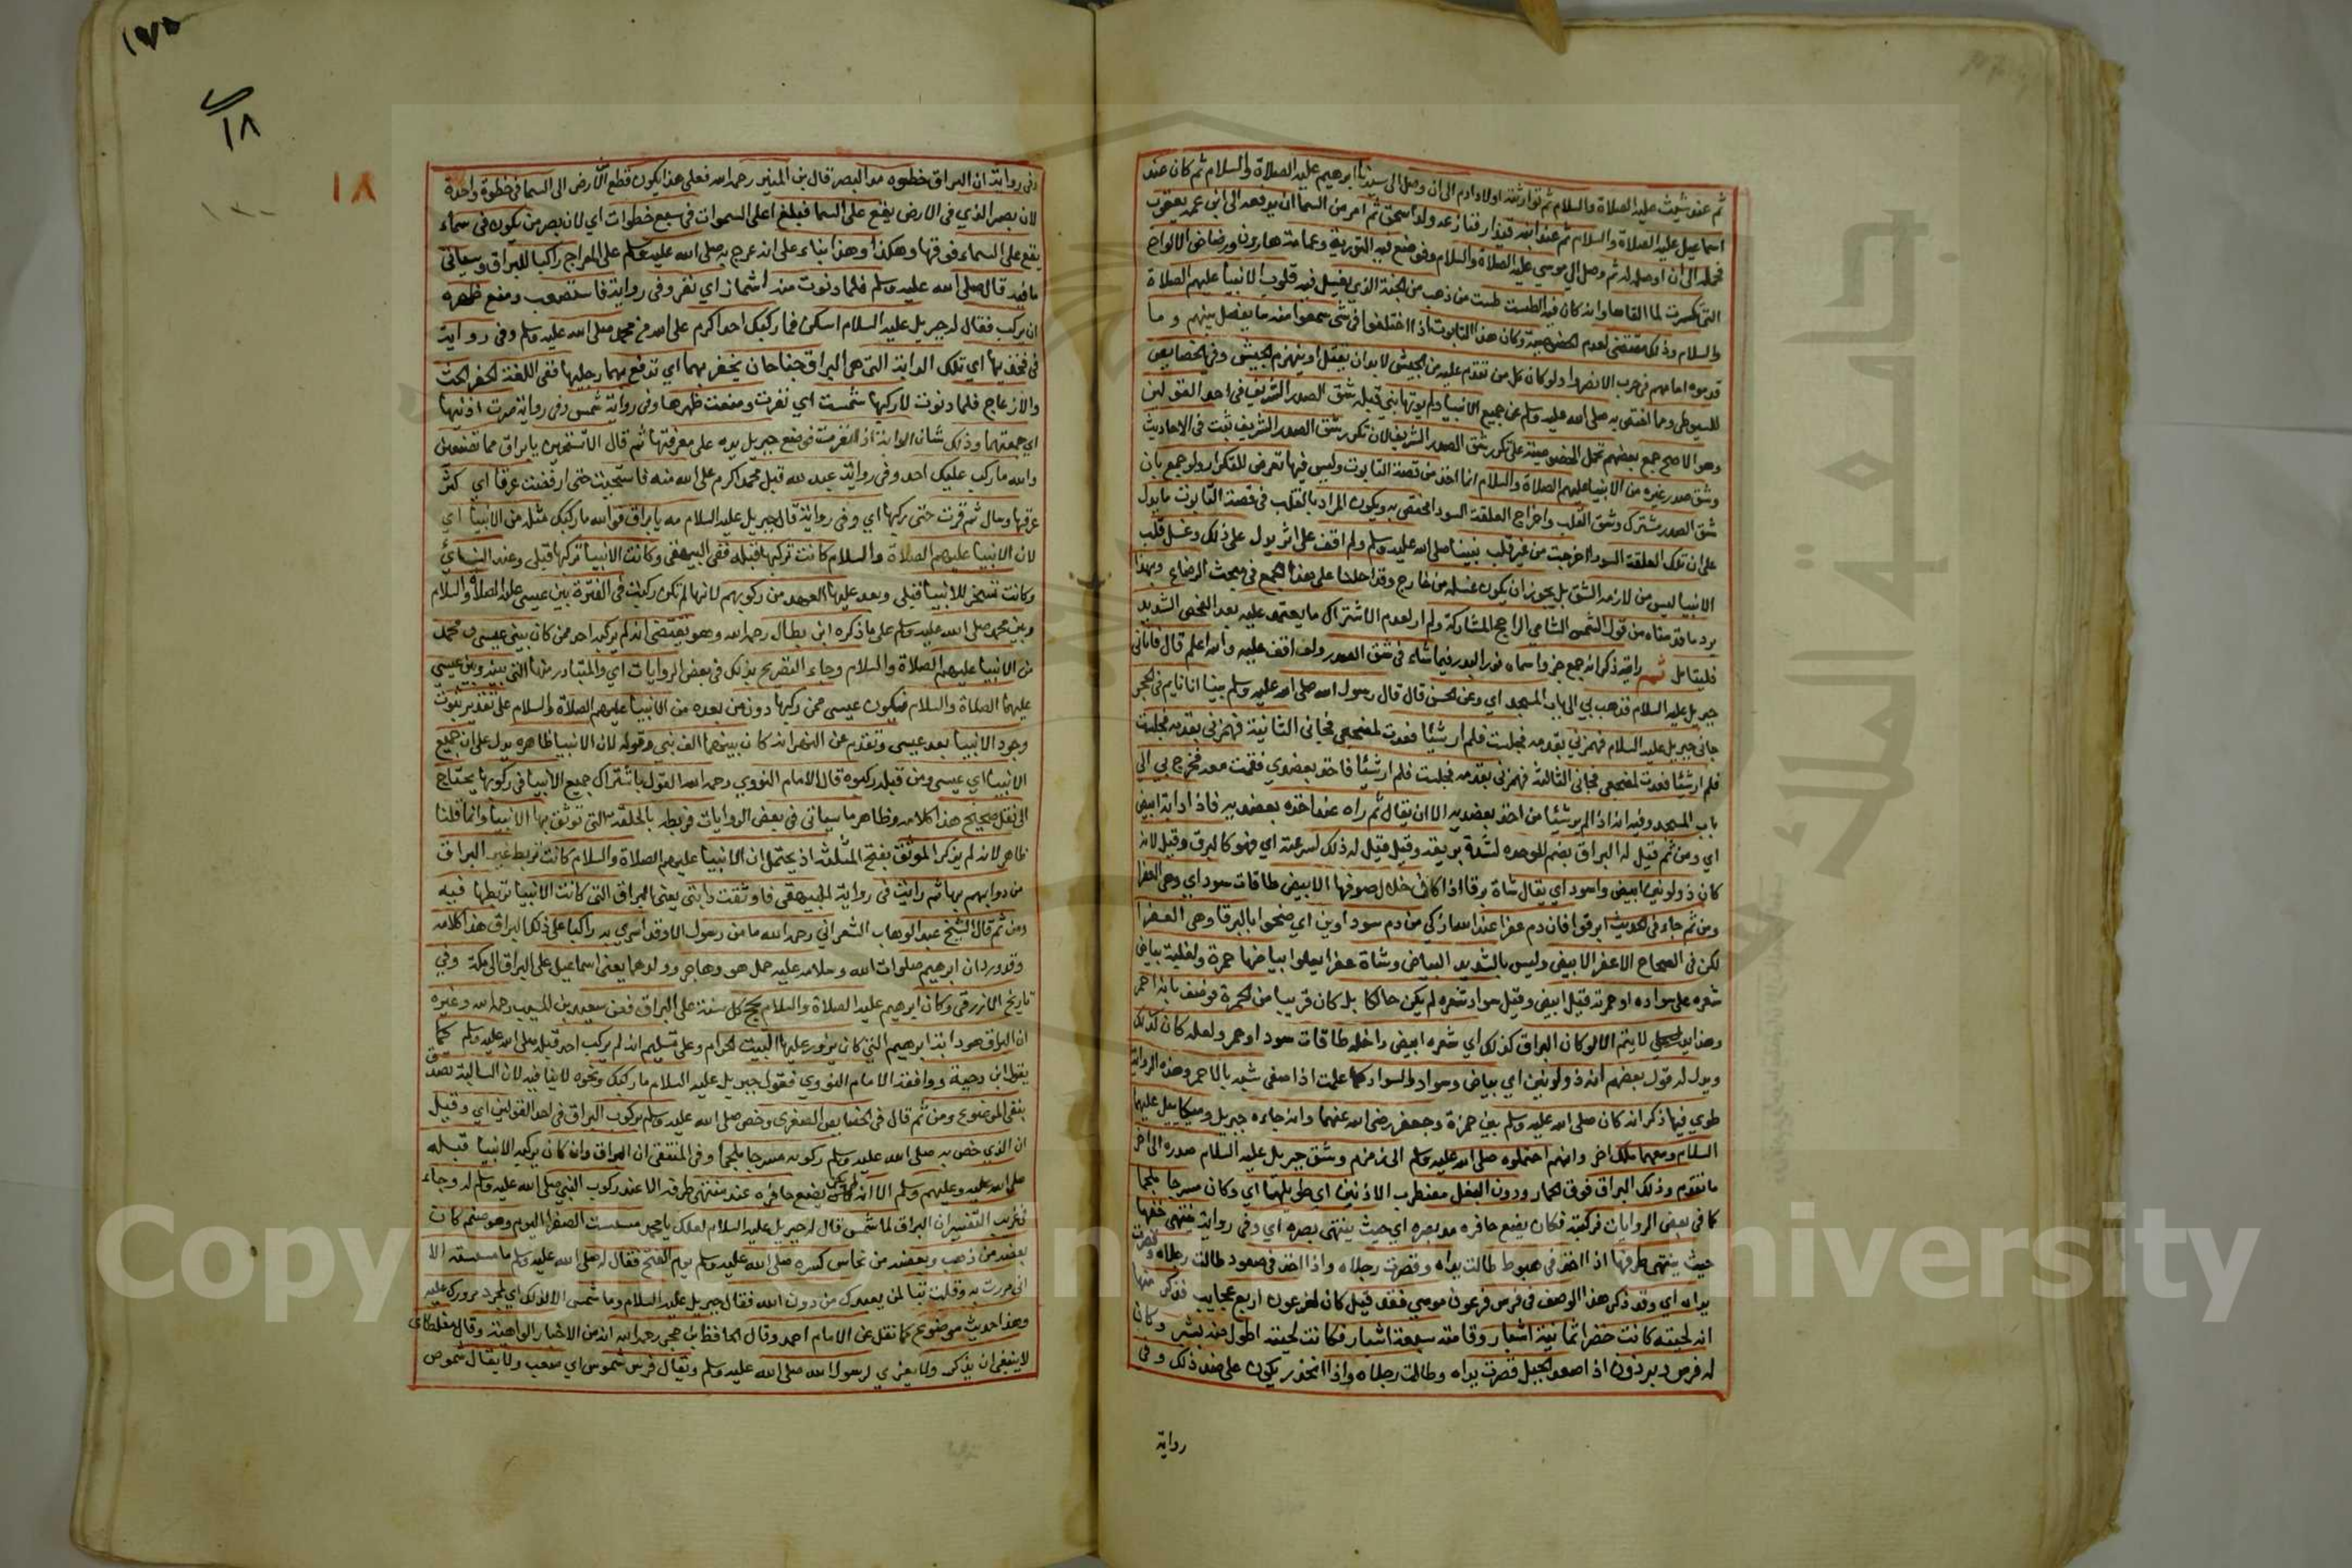 ثم عند شيث عليه الصلاة والسلام ثم توارثته اولاد ادم الى ان وصل الى سيدنا ابرهيم عليه الصلاة والسلام ثم كان عند
اسماعيل عليه الصلاة والسلام ثم عند ابنه قيذار فنازعه ولد اسحق ثم امر من السما ان يدفعه الى ابن عمه يعقوب
فحمله الى ان اوصله له ثم وصل الى موسي عليه الصلاة والسلام فوضع فيه التورية وعمامة هارون ورضاض الالواح
التي تكسرت لما القاها وانه كان فيه الطست طست من ذهب من الجنة الذي يغسل فيه قلوب الانبيا عليهم الصلاة
والسلام وذلك مقتضى لعدم الخصوصية وكان هذا التابوت اذا اختلفوا في شي سمعوا منه ما يفصل بينهم وما
قدموه امامهم في حرب الا نصروا وكان كل من تقدم عليه من الجيش لابد ان يقتل او ينهزم الجيش وفي الخصايص
للسيوطي ومما اختص به صلى الله عليه وسلم عن جميع الانبيا ولم يوتها نبي قبله شق الصدر الشريف في احد القولين
وهو الاصح جمع بعضهم بحمل الخصوصية على تكرر شق الصدر الشريف لان تكرر شق الصدر الشريف ثبت في الاحاديث
وشق صدر غيره من الانبيا عليهم الصلاة والسلام انما اخذ من قصة التابوت وليس فيها تعرض للتكرار ولو جمع بان
شق الصدر مشترك وشق القلب واخراج العلقة السودا مختص به ويكون المراد بالقلب في قصة التابوت ما يدل
على ان تلك العلقة السودا اخرجت من غير قلب نبينا صلى الله عليه وسلم ولم اقف على اثر يدل على ذلك وغسل قلب
الانبيا ليس من لازمه الشق بل يجوز ان يكون غسله من خارج وقد احلنا على هذا الجمع في مبحث الرضاع وبهذا
يرد ما قدمناه من قول الشمس الشامي الراجح المشاركة ولم ار لعدم الاشتراك ما يعتمد عليه بعد الفحص الشديد
فليتامل ثم رايته ذكر انه جمع جزوا سماه نور البدر فيما جاء في شق الصدر ولم اقف عليه والله اعلم قال فاتاني
جبريل عليه السلام فذهب بي الى باب المسجد اي وعن الحسن قال قال رسول الله صلى الله عليه وسلم بينا انا نايم في الحجر
جاني جبريل عليه السلام فهمزني بقدمه فجلست فلم ار شيئا فعدت لمضجعي فجاني الثانية فهمزني بقدمه فجلست
فلم ار شيئا فعدت لمضجعي فجاني الثالثة فهمزني بقدمه فجلست فلم ار شيئا فاخذ بعضدي فقمت معه فخرج بي الى
باب المسجد وفيه انه اذا لم ير شيئا من اخذ بعضديه الا ان يقال ثم راه عند اخذه بعضديه فاذا دابة ابيض
اي ومن ثم قيل له البراق بضم الموحدة لشدة بريقه وقيل قيل له ذلك لسرعته اي فهو كالبرق وقيل لانه
كان ذو لونين ابيض واسود اي يقال شاة برقا اذا كان خلال صوفها الابيض طاقات سود اي وهي العفرا
ومن ثم جاء في الحديث ابرقوا فان دم عفرا عند الله ازكي من دم سوداوين اي ضحوا بالبرقا وهي العفرا
لكن في الصحاح الاعفر الابيض وليس بالشديد البياض وشاة عفرا يعلوا بياضها حمرة ولغلبة بياض
شعره على سواده او حمرته قيل ابيض وقيل سواد شعره لم يكن حالكا بل كان قريبا من الحمرة فوصف بانه احمر
وهذا لا يتم الا لو كان البراق كذلك اي شعره ابيض داخله طاقات سود او حمر ولعله كان كذلك
ويدل له قول بعضهم انه ذو لونين اي بياض وسواد والسواد كما علمت اذا صفى شبه بالاحمر وهذه الرواية
طوي فيها ذكر انه كان صلى الله عليه وسلم بين حمزة وجعفر رضي الله عنهما وانه جاءه جبريل وميكاييل عليهما
السلام ومعهما ملك اخر وانهم احتملوه صلى الله عليه وسلم الى زمزم وشق جبريل عليه السلام صدره الى اخر
ما تقدم وذلك البراق فوق الحمار ودون البغل مضطرب الاذنين اي طويلهما اي وكان مسرجا ملجما
كما في بعض الروايات فركبته فكان يضع حافره مد بصره اي حيث ينتهي بصره اي وفي رواية ينتهي خفها
حيث ينتهي طرفها اذا اخذ في هبوط طالت يداه وقصرت رجلاه واذا اخذ في صعود طالت رجلاه وقصرت
يداه اي وقد ذكر هذا الوصف في فرس فرعون موسي فقد قيل كان لفرعون اربع عجايب فذكر منها
انه لحيته كانت خضرا ثمانية اشبار وقامته سبعة اشبار فكانت لحيته اطول منه بشبر وكان
له فرس وبرذون اذا صعد الجبل قصرت يداه وطالت رجلاه واذا انحدر يكون على ضد ذلك وفي
رواية
١٧٥
١٨
١٨
وفي رواية ان البراق خطوه مد البصر قال بن المنير رحمه الله فعلى هذا يكون قطع الارض الى السما في خطوة واحدة
لان بصر الذي في الارض يقع على السما فبلغ اعلى السموات في سبع خطوات اي لان بصر من يكون في سماء
يقع على السماء فوقها وهكذا وهذا بناء على انه عرج به صلى الله عليه وسلم على المعراج راكبا للبراق وسياتي
ما فيه قال صلى الله عليه وسلم فلما دنوت منه اشماز اي نفر وفي رواية فاستصعب ومنع ظهره
ان يركب فقال له جبريل عليه السلام اسكن فما ركبك احد اكرم على الله من محمد صلى الله عليه وسلم وفي رواية
في فخذيها اي تلك الدابة التي هي البراق جناحان يحفز بهما اي تدفع بهما رجليها ففي اللغة الحفز الحث
والازعاج فلما دنوت لاركبها شمست اي نفرت ومنعت ظهرها وفي رواية شمس وفي رواية صرت اذنيها
اي جمعتهما وذلك شان الدابة اذا نفرت فوضع جبريل يده على معرفتها ثم قال الا تستحيين يا براق مما تصنعين
والله ما ركب عليك احد وفي رواية عبد لله قبل محمد اكرم على الله منه فاستحيت حتى ارفضت عرقا اي كثر
عرقها وسال ثم قرت حتى ركبها اي وفي رواية قال جبريل عليه السلام مه يا براق فوالله ما ركبك مثله من الانبيا اي
لان الانبيا عليهم الصلاة والسلام كانت تركبها قبله ففي البيهقي وكانت الانبيا تركبها قبلي وعند النسائي
وكانت تسخر للانبيا قبلي وبعد عليها العهد من ركوبهم لانها لم تكن ركبت في الفترة بين عيسى عليه الصلاة والسلام
وبين محمد صلى الله عليه وسلم على ما ذكره ابن بطال رحمه الله وهو يقتضي انه لم يركبه احد ممن كان بين عيسى ومحمد
من الانبيا عليهم الصلاة والسلام وجاء التصريح بذلك في بعض الروايات اي والمتبادر منها التي بينه وبين عيسى
عليهما الصلاة والسلام فيكون عيسى ممن ركبها دون من بعده من الانبيا عليهم الصلاة والسلام على تقدير ثبوت
وجود الانبيا بعد عيسى وتقدم عن النهر انه كان بينهما الف نبي وقوله لان الانبيا ظاهره يدل على ان جميع
الانبيا اي عيسى ومن قبله ركبوه قال الامام النووي رحمه الله القول باشتراك جميع الانبيا في ركوبها يحتاج
الى نقل صحيح هذا كلامه وظاهر ما سياتي في بعض الروايات فربطه بالحلقة التي توثق بها الانبيا وانما قلنا
ظاهر لانه لم يذكر الموثق بفتح المثلثة اذ يحتمل ان الانبيا عليهم الصلاة والسلام كانت تربط غير البراق
من دوابهم بها ثم رايت في رواية البيهقي فاوثقت دابتي يعني البراق التي كانت الانبيا تربطها فيه
ومن ثم قال الشيخ عبد الوهاب الشعراني رحمه الله ما من رسول الا وقد اسري به راكبا على ذلك البراق هذا كلامه
وقد ورد ان ابرهيم صلوات الله وسلامه عليه حمل هو وهاجر وولدهما يعني اسماعيل على البراق الى مكة وفي
تاريخ الازرقي وكان ابرهيم عليه الصلاة والسلام يحج كل سنة على البراق فعن سعيد بن المسيب رحمه الله وغيره
ان البراق هو دابة ابرهيم التي كان يزور عليها البيت الحرام وعلى تسليم انه لم يركب احد قبله صلى الله عليه وسلم كما
يقول ابن دحية ووافقه الامام النووي فقول جبريل عليه السلام ما ركبك ونحوه لا ينافيه لان السالبة تصدق
بنفي الموضوع ومن ثم قال في الخصايص الصغرى وخص صلى الله عليه وسلم بركوب البراق في احد القولين اي وقيل
ان الذي خص به صلى الله عليه وسلم ركوبه مسرجا ملجما وفي المنتقى ان البراق وان كان يركبه الانبيا قبله
صلى الله عليه وعليهم وسلم الا انه لم يكن يضع حافره عند منتهى طرفه الا عند ركوب النبي صلى الله عليه وسلم له وجاء
في غريب التفسير ان البراق لما شمس قال له جبريل عليه السلام لعلك يا محمد مسست الصفرا اليوم وهو صنم كان
بعضه من ذهب وبعضه من نحاس كسره صلى الله عليه وسلم يوم الفتح فقال له صلى الله عليه وسلم ما مسسته الا
اني مررت به وقلت تبا لمن يعبدك من دون الله فقال جبريل عليه السلام وما شمس الا لذلك اي لمجرد مرورك عليه
وهذا حديث موضوع كما نقل عن الامام احمد وقال الحافظ بن حجر رحمه الله انه من الاخبار الواهية وقال مغلطاي
لا ينبغي ان يذكر ولا يعزي لرسول الله صلى الله عليه وسلم ويقال فرس شموس اي صعب ولا يقال شموص
Copyright © King Saud University
جامعة الملك سعود